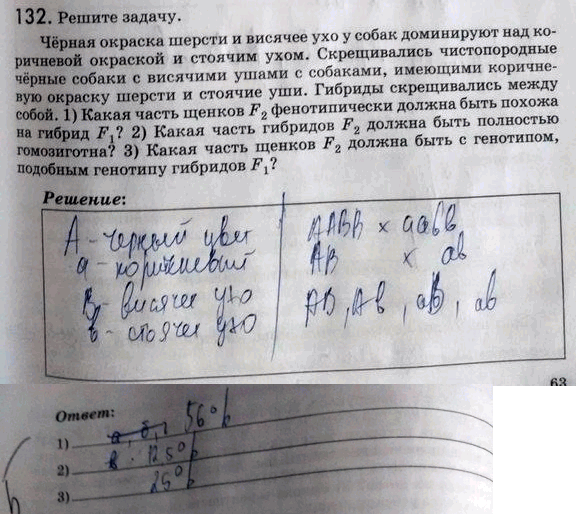 132. Решите задачу.
Чёрная окраска шерсти и висячее ухо у собак доминируют над ко-
ричневой окраской и стоячим ухом. Скрещивались чистопородные
чёрные собаки с висячими ушами с собаками, имеющими коричне-
вую окраску шерсти и стоячие уши. Гибриды скрещивались между
собой. 1) Какая часть щенков F₂ фенотипически должна быть похожа
на гибрид F₁? 2) Какая часть гибридов F₂ должна быть полностью
гомозиготна? 3) Какая часть щенков F₂ должна быть с генотипом,
подобным генотипу гибридов F₁?
Решение:
А - черный цвет
а - коричневый
В - висячее ухо
в - стоячее ухо
ААВВ х аавв
АВ х ав
АВ, Ав, аВ, ав
63
Ответ:
1) 56%
2) 125%
3) 25%